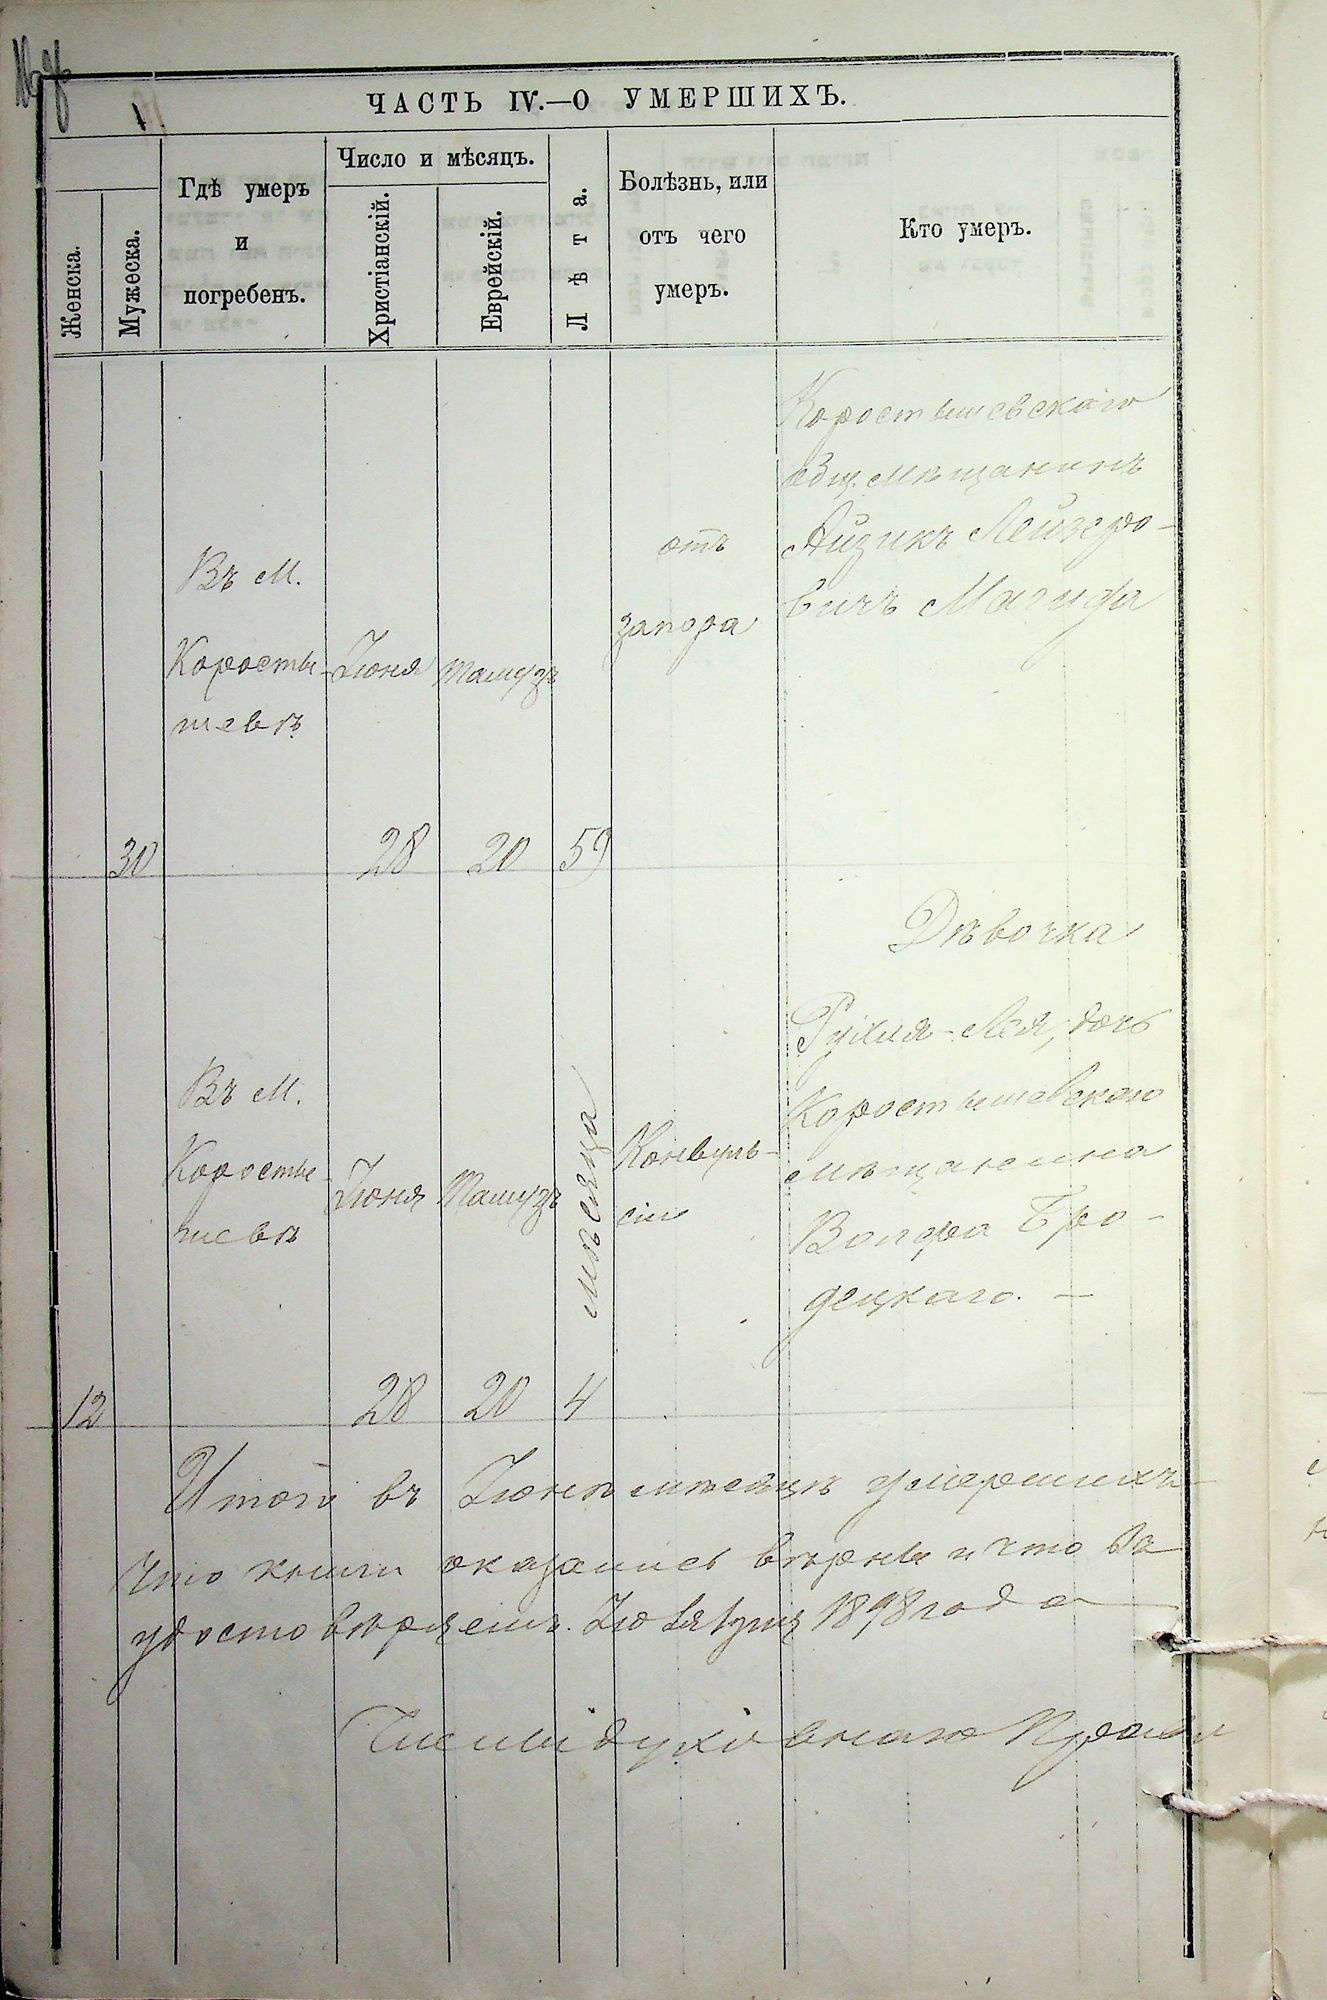 ЧАСТЬ IV.—О УМЕРШИХЪ.
Женска.
Мужеска.
Гдѣ умеръ
и
погребенъ.
Число и мѣсяцъ.
Христіанскій.
Еврейскій.
Лѣта.
Болѣзнь, или
отъ чего
умеръ.
Кто умеръ.
30
Въ М.
Коросты-
шевѣ
Іюня
28
Тамузъ
20
59
отъ
запора
Коростышевскаго
общ. мѣщанинъ
Айзикъ Лейзеро-
вичъ Магида
12
Въ М.
Коросты-
шевѣ
Іюня
28
Тамузъ
20
мѣсяца
4
Конвуль-
сіи
Дѣвочка
Рухля-Лея, дочь
Коростышевскаго
мѣщанина
Вольфа Бро-
децкаго. —
Итого въ Іюнѣ мѣсяцѣ умершихъ
что книги оказались вѣрны и что
удостовѣряемъ. 1898 года
духовнаго